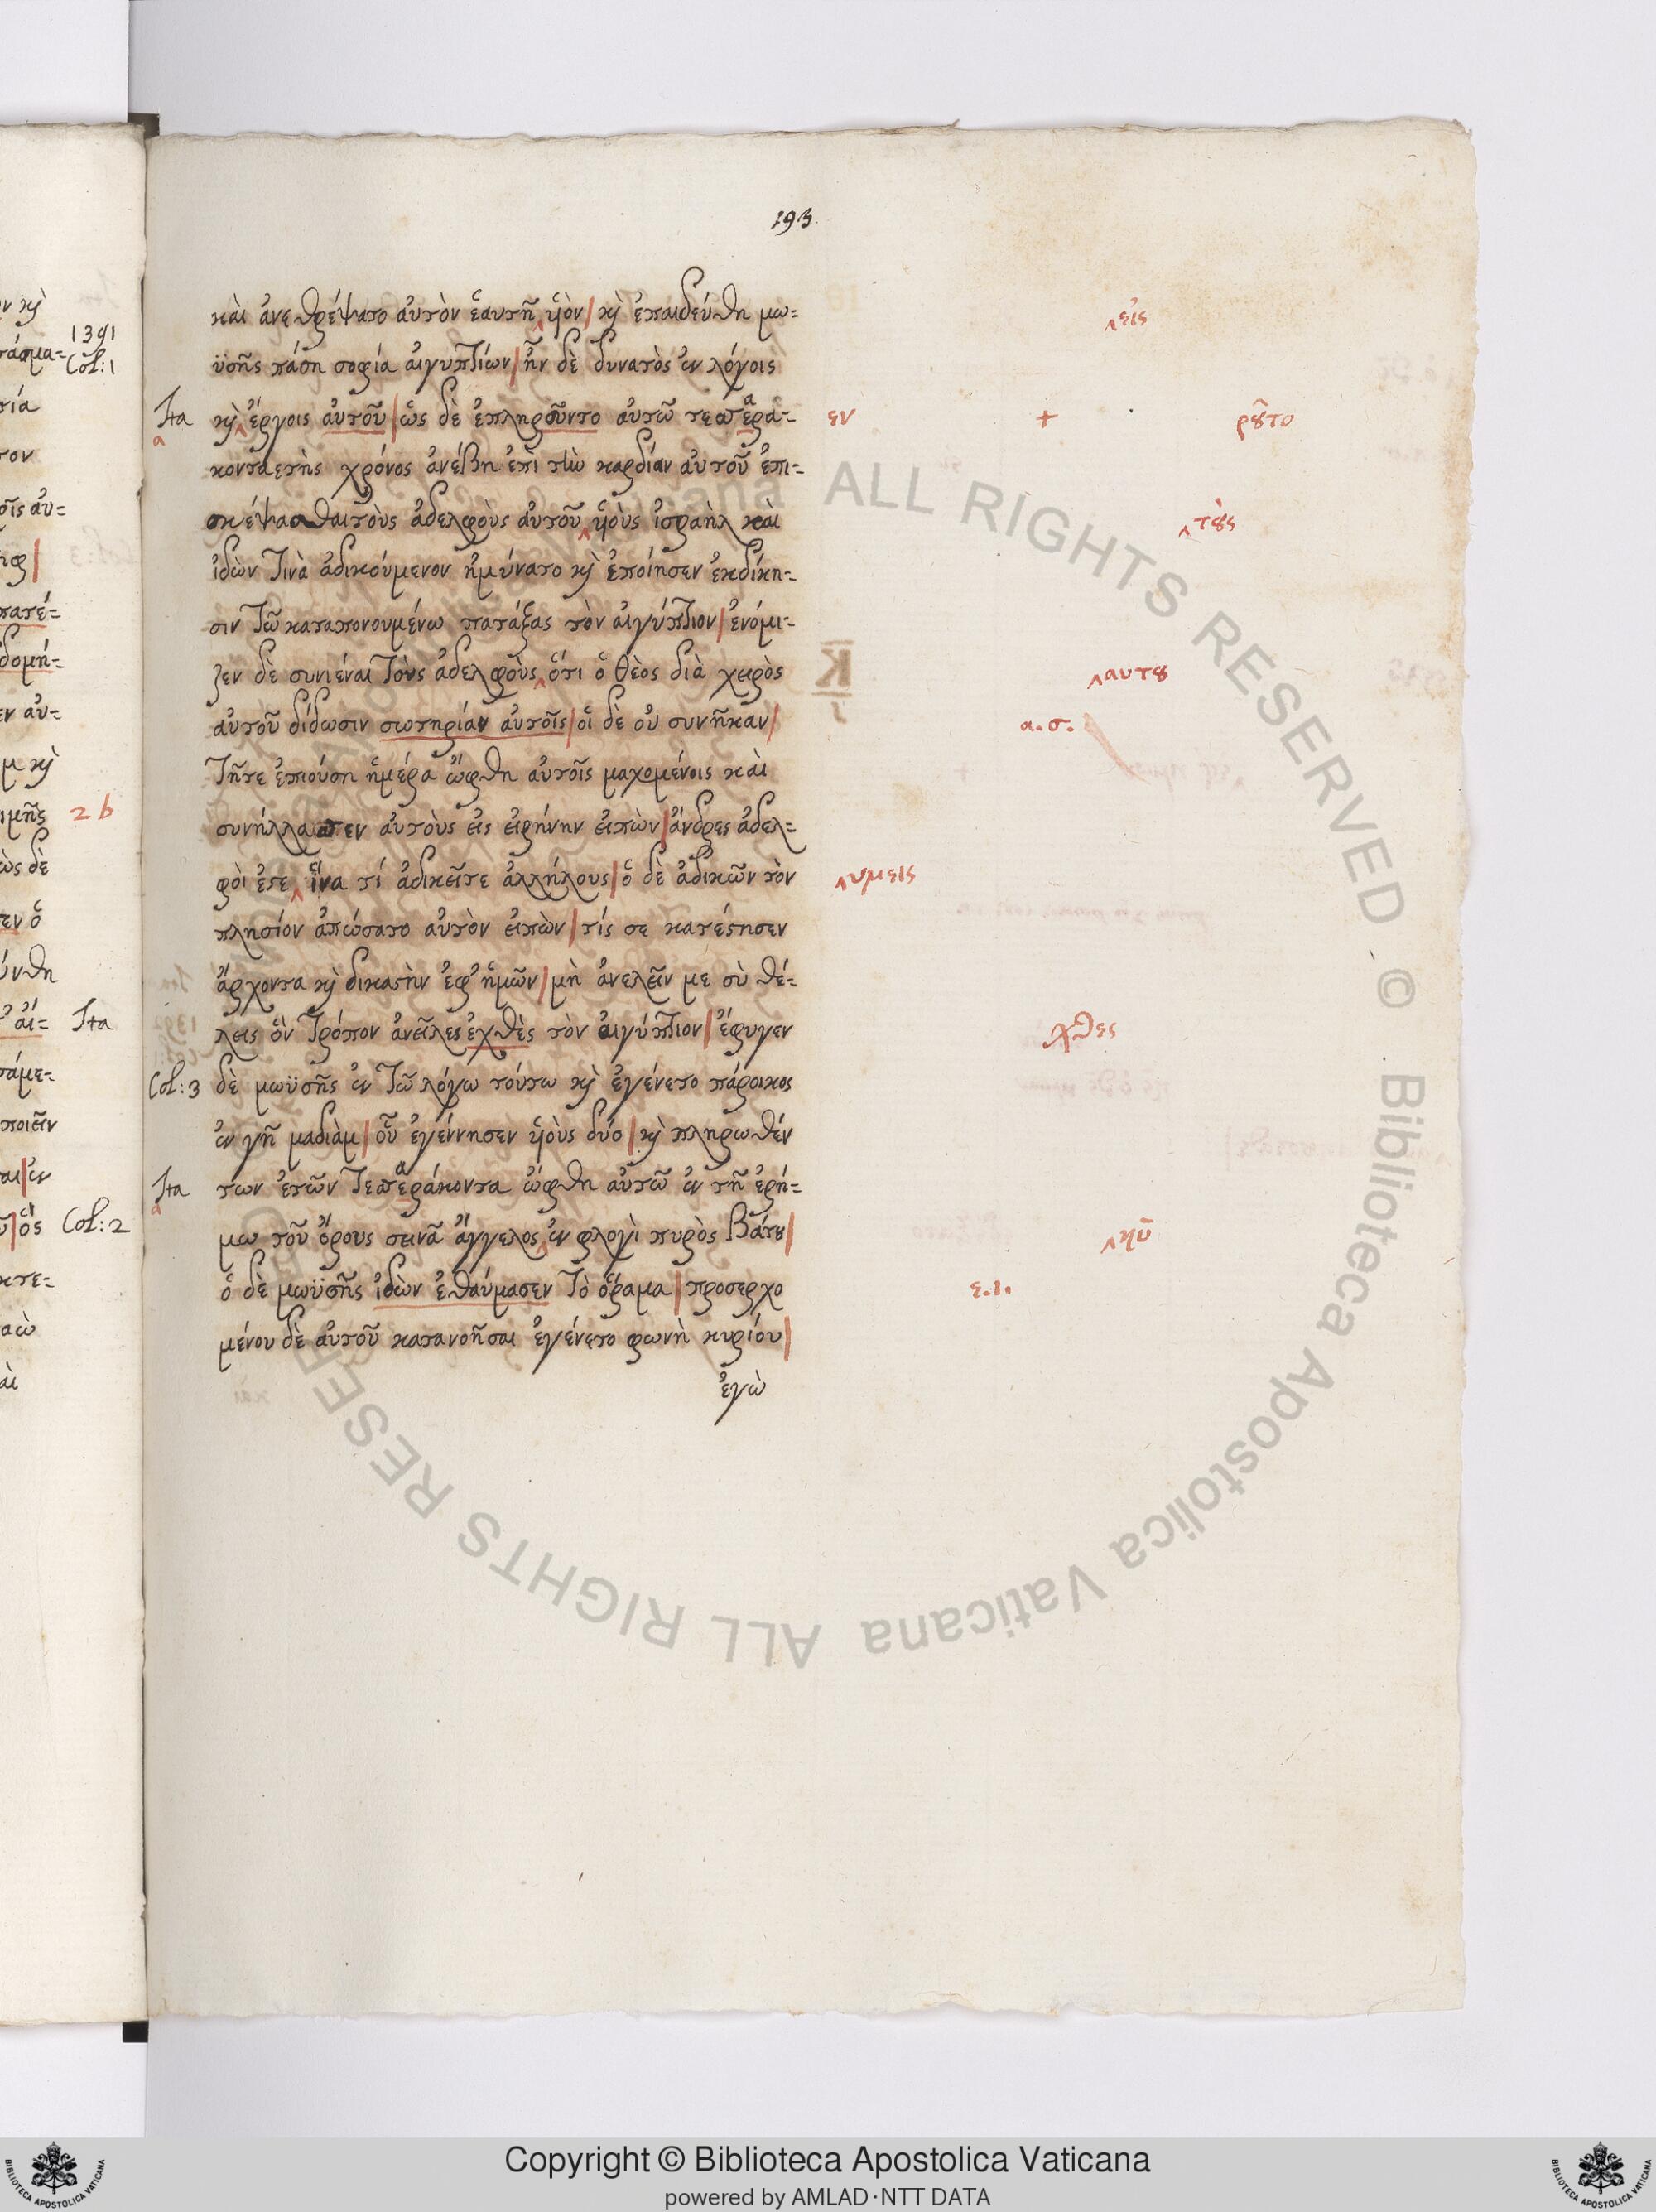 193.
καὶ ἀνεθρέψατο αὐτὸν ἑαυτῆ ‸ υἱὸν | κỳ ἐπαιδεύθη μω= ‸εἰς
ϋσῆς πάση σοφία αἰγυπτίων | ἦν δὲ δυνατὸς ἐν λόγοις
Ita κỳ ‸ ἔργοις αὐτοῦ | ὡς δὲ ἐπληροῦντο αὐτῶ τεσσερα= εν + ρȣ͂το
κονταετὴς χρόνος ἀνέβη ἐπὶ τὴν καρδίαν αὐτοῦ ἐπι=
σκέψασθαι τοὺς ἀδελφοὺς αὐτοῦ ‸ υἱοὺς ἰσραὴλ καὶ ‸τȣς
ἰδὼν τινὰ ἀδικούμενον ἠμύνατο κỳ ἐποίησεν ἐκδίκη=
σιν τῶ καταπονουμένω πατάξας τὸν αἰγύπτιον | ἐνόμι=
ζεν δὲ συνιέναι τοὺς ἀδελφοὺς ‸ ὅτι ὁ θεὸς διὰ χειρὸς ‸αυτȣ
αὐτοῦ δίδωσιν σωτηρίαν αὐτοῖς | οἱ δὲ οὐ συνῆκαν | α.σ.
τῆτε ἐπιούση ἡμέρα ὤφθη αὐτοῖς μαχομένοις καὶ
συνήλλασσεν αὐτοὺς εἰς εἰρήνην εἰπὼν | ἄνδρες ἀδελ=
φοὶ ἐστε ‸ ἵνα τί ἀδικεῖτε ἀλλήλους | ὁ δὲ ἀδικῶν τὸν ‸υμεις
πλησίον ἀπώσατο αὐτὸν εἰπὼν | τίς σε κατέστησεν
ἄρχοντα κỳ δικαστὴν ἐφ' ἡμῶν | μὴ ἀνελεῖν με σὺ θέ=
λεις ὃν τρόπον ἀνεῖλες ἐχθὲς τὸν αἰγύπτιον | ἔφυγεν χθες
Col: 3 δὲ μωϋσῆς ἐν τῶ λόγω τούτω κỳ ἐγένετο πάροικος
ἐν γῆ μαδιὰμ | οὗ ἐγέννησεν υἱοὺς δύο | κỳ πληρωθέν
Ita των ἐτῶν τεσσεράκοντα ὤφθη αὐτῶ ἐν τῆ ἐρή=
μω τοῦ ὄρους σεινᾶ ἄγγελος ‸ ἐν φλογὶ πυρὸς βάτȣ | ‸κῡ
ὁ δὲ μωϋσῆς ἰδὼν ἐθαύμασεν τὸ ὅραμα | προσερχο ε.ι.
μένου δὲ αὐτοῦ κατανοῆσαι ἐγένετο φωνὴ κυρίου |
ἐγὼ
1391
Col: 1
2 b
Ita
Col: 2
ALL RIGHTS RESERVED © Biblioteca Apostolica Vaticana ALL RIGHTS RESERVED
Copyright © Biblioteca Apostolica Vaticana
powered by AMLAD·NTT DATA